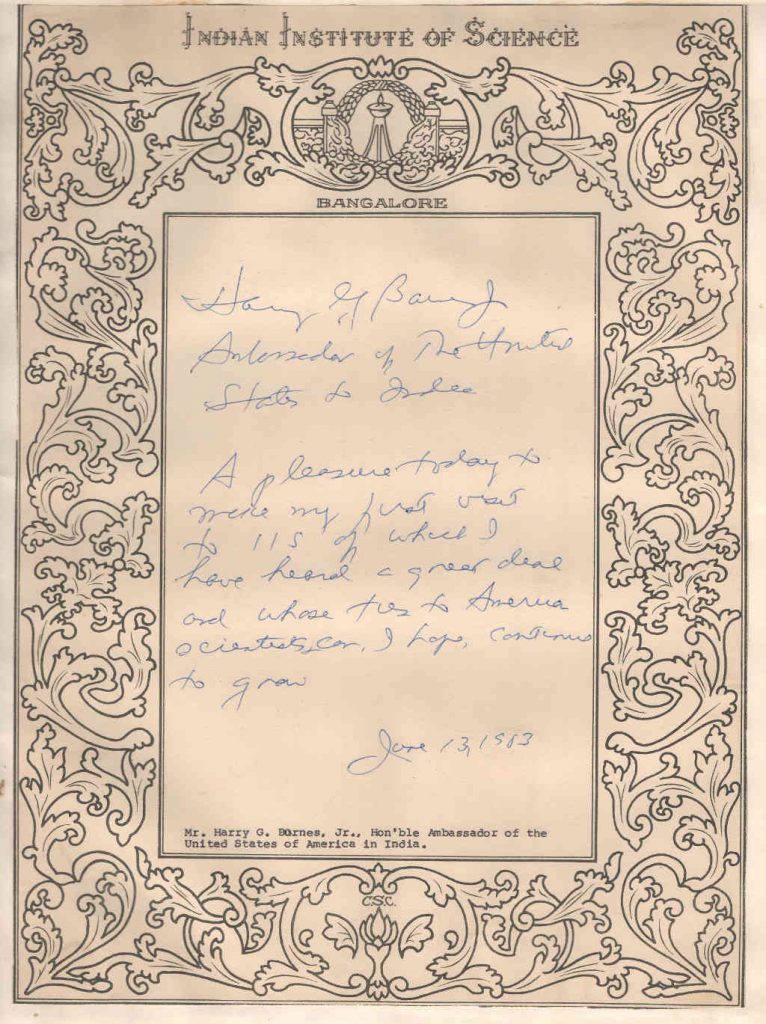 INDIAN INSTITUTE OF SCIENCE
BANGALORE
Harry G Barnes Jr
Ambassador of The United
States to India
A pleasure today to
make my first visit
to IIS of which I
have heard a great deal
and whose ties to America
scientists can, I hope, continue
to grow
June 13, 1983
Mr. Harry G. Barnes, Jr., Hon'ble Ambassador of the
United States of America in India.
C.S.C.